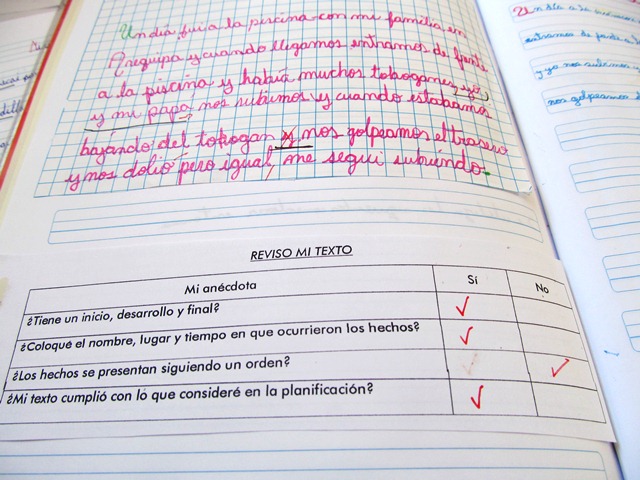 Un día fui a la piscina con mi familia en
Arequipa y cuando llegamos entramos de frente
a la piscina y había muchos toboganes, yo,
y mi papá nos subimos y cuando estabamos
bajando del tobogan y nos golpeamos el trasero
y nos dolio pero igual, me segui subiendo.
REVISO MI TEXTO
Mi anécdota Sí No
¿Tiene un inicio, desarrollo y final? ✓
¿Coloqué el nombre, lugar y tiempo en que ocurrieron los hechos? ✓
¿Los hechos se presentan siguiendo un orden? ✓
¿Mi texto cumplió con lo que consideré en la planificación? ✓
Un día
entramos de
y yo nos
nos golpeamos